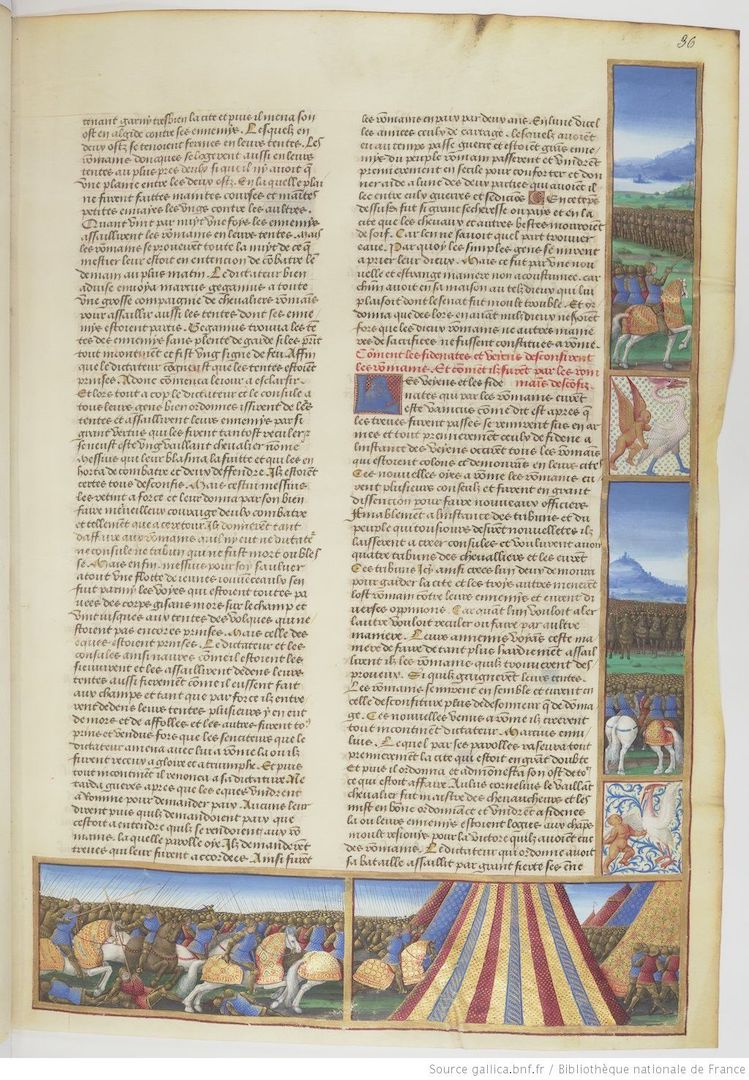 36
tenant garny tresbien la cite et puis il mena son
ost en algide contre ses ennemys. Lesquelz en
deux ostz se tenoient fermes en leurs tentes. Les
rommains doncques se logerent aussi en leurs
tentes au plus pres deulx si que il ny avoit que
une plaine entre les deux ostz. En laquelle plai
ne furent faittes maintes courses et maintes
petites envayes les ungs contre les aultres.
Quant vint par nuyt une foys les ennemys
assaillirent les rommains en leurs tentes. Mais
les rommains se proveurent toute la nuyt de ce que
mestier leur estoit en entencion de combatre le
demain au plus matin. Le dictateur bien
advise envoya marcus geganius a toute
une grosse compaignie de chevaliers rommains
pour assaillir aussi les tentes dont ses enne
mys estoient partis. Geganius trouva les ten
tes des ennemys sans plente de gardes si les print
tout incontinent et fist ung signe de feu. Affin
que le dictateur cogneust que les tentes estoient
prinses. Adonc commenca le jour a esclarsir.
Et lors tout a cop le dictateur et le consule a
tous leurs gens bien ordonnes issirent de leurs
tentes et assaillirent leurs ennemys par si
grant vertus quilz les firent tantost reculer
se neust este ung vaillant chevalier nomme
Messius qui leur blasma la fuitte et qui les en
horta de combatre et deulx deffendre. Ilz estoient
certes tous desconfis. Mais cestui messius
les retint a force et leur donna par son bien
faire merveilleux courage deulx combatre
et tellement que a ce retour ilz donnerent tant
daffaire aux rommains quil ny eut ne dictateur
ne consule ne tribun qui ne fust mort ou bles
se. Mais en fin messius pour soy saulver
atout une flotte de jeunes jouvenceaulx sen
fuit parmy les voyes qui estoient toutes pa
vees des corps gisans mors sur le champ et
vint jusques aux tentes des volques qui ne
stoient pas encores prinses. Mais celle des
eques estoient prinses. Le dictateur et les
consules ainsi navres comme il estoient les
suivirent et les assaillirent dedens leurs
tentes aussi fierement comme il eussent fait
aux champs et tant que par force ilz entre
rent dedens leurs tentes plusieurs y en eut
de mors et de affolles et les autres furent tous
prins et vendus fors que les senateurs que le
dictateur amena avec lui a romme la ou il
furent receuz a gloire et a triumphe. Et puis
tout incontinent il renonca a sa dictature. Ne
tarda gueres apres que les eques vindrent
a romme pour demander paix. Aucuns leur
dirent puis quilz demandoient paix que
cestoit a entendre quilz se rendoient aux rom
mains. la quelle parolle oye ilz demanderent
treves qui leur furent accordees. Ainsi furent
les rommains en paix par deux ans. En lune dicelles
les annees ceulx de cartage. lesquelz avoient
eu au temps passe guerre et estoient grans enne
mys du peuple rommain passerent et vindrent
premierement en secile pour conforter et don
ner aide a lune des deux parties qui avoient il
lec entre eulx guerre et sedicion. En ce temps
dessusdit fut si grant secheresse ou pays et en la
cite que les chevaux et autres bestes mouroient
de soif. Car len ne savoit quel part trouver
eaue. Par quoy les simples gens se mirent
a prier leur dieux. Mais ce fut par une nou
velle et estrange maniere non acoustumee. car
chascun avoit en sa maison autel dieux qui lui
plaisoit dont le senat fut moult trouble. Et or
donna que des lors en avant nulz dieux ne soient
fors que les dieux rommains ne autres manie
res de sacrifices ne fussent constitues a romme.
Comment les fidenates et veyens desconfirent
les rommains. Et comment ilz furent par les rom
Les veyens et les fide mains desconfiz.
nates qui par les rommains eurent
este vaincus comme dit est apres que
les treves furent passees se remirent sus en ar
mes et tout premierement ceulx de fidene a
linstance des veyens occirent tous les rommains
qui estoient colons et demourans en leur cite
Ces nouvelles oyes a romme les rommains eu
rent plusieurs conseulz et furent en grant
dissencion pour faire nouveaux officiers
Finablement a linstance des tribuns et du
peuple qui tousjours desirent nouvelletes ilz
laisserent a creer consules et voulurent avoir
quatre tribuns des chevalliers et les eurent
Ces tribuns icy ainsi crees lun deulx demoura
pour garder la cite et les troys autres menerent
lost rommain contre leurs ennemys et eurent di
verses oppinions. Car quant lun vouloit aler
lautre vouloit reculer ou faire par aultre
maniere. Leurs ennemis voyans ceste ma
niere de faire de tant plus hardiement assail
lirent ilz les rommains quilz trouverent des
proveuz. Si quilz gaignerent leurs tentes.
Les rommains sen vindrent en semble et eurent en
celle desconfiture plus deshonneur que de domma
ge. Ces nouvelles venues a romme ilz creerent
tout incontinent dictateur. Marcus emi
lius. Lequel par ses parolles rasseura tout
premierement la cite qui estoit en grant doubte
Et puis il ordonna et admonesta son ost de tout
ce qui estoit affaire. Aulus cornelius le vaillant
chevalier fut maistre des chevaucheurs et les
mist en bonne ordonnance et vindrent a fidenes
la ou leurs ennemys estoient loges aux champs
moult resjouys pour la victoire quilz avoient eue
des rommains. Le dictateur qui ordonne avoit
sa bataille assaillit par grant fierte ses enne
Source gallica.bnf.fr / Bibliothèque nationale de France